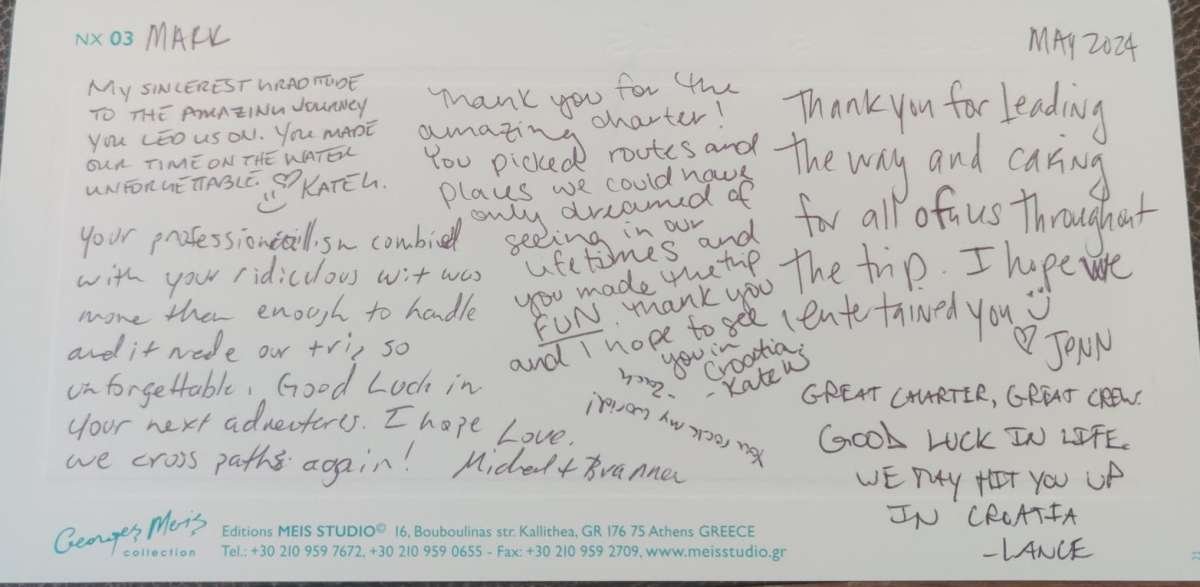 NX 03 MARK
MAY 2024
MY SINCEREST GRADITUDE
TO THE AMAZING JOURNEY
YOU LED US ON. YOU MADE
OUR TIME ON THE WATER
UNFORGETTABLE. ♡ KATE G.
Your professionalism combined
with your ridiculous wit was
more then enough to handle
and it made our trip so
unforgettable. Good Luck in
your next adventures. I hope
we cross paths again!
Love,
Michael + Branner
Thank you for the
amazing charter!
You picked routes and
places we could have
only dreamed of
seeing in our
lifetimes and
you made the trip
FUN. Thank you
and I hope to see
you in
Croatia.
- Kate W
You rock my world!
- Zach
Thank you for leading
the way and caring
for all of us throughout
the trip. I hope we
entertained you
♡ JENN
GREAT CHARTER, GREAT CREW.
GOOD LUCK IN LIFE.
WE MAY HIT YOU UP
IN CROATIA
-LANCE
Georges Meis
collection
Editions MEIS STUDIO© 16, Bouboulinas str. Kallithea, GR 176 75 Athens GREECE
Tel.: +30 210 959 7672, +30 210 959 0655 - Fax: +30 210 959 2709, www.meisstudio.gr